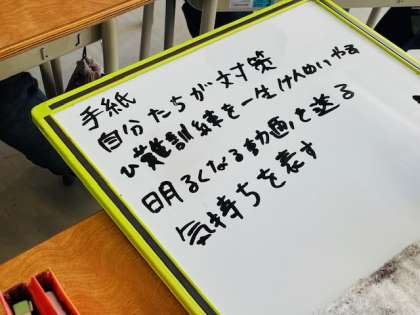 手紙
自分たちが対策
ひ難訓練を一生けんめいやる
明るくなる動画を送る
気持ちを表す